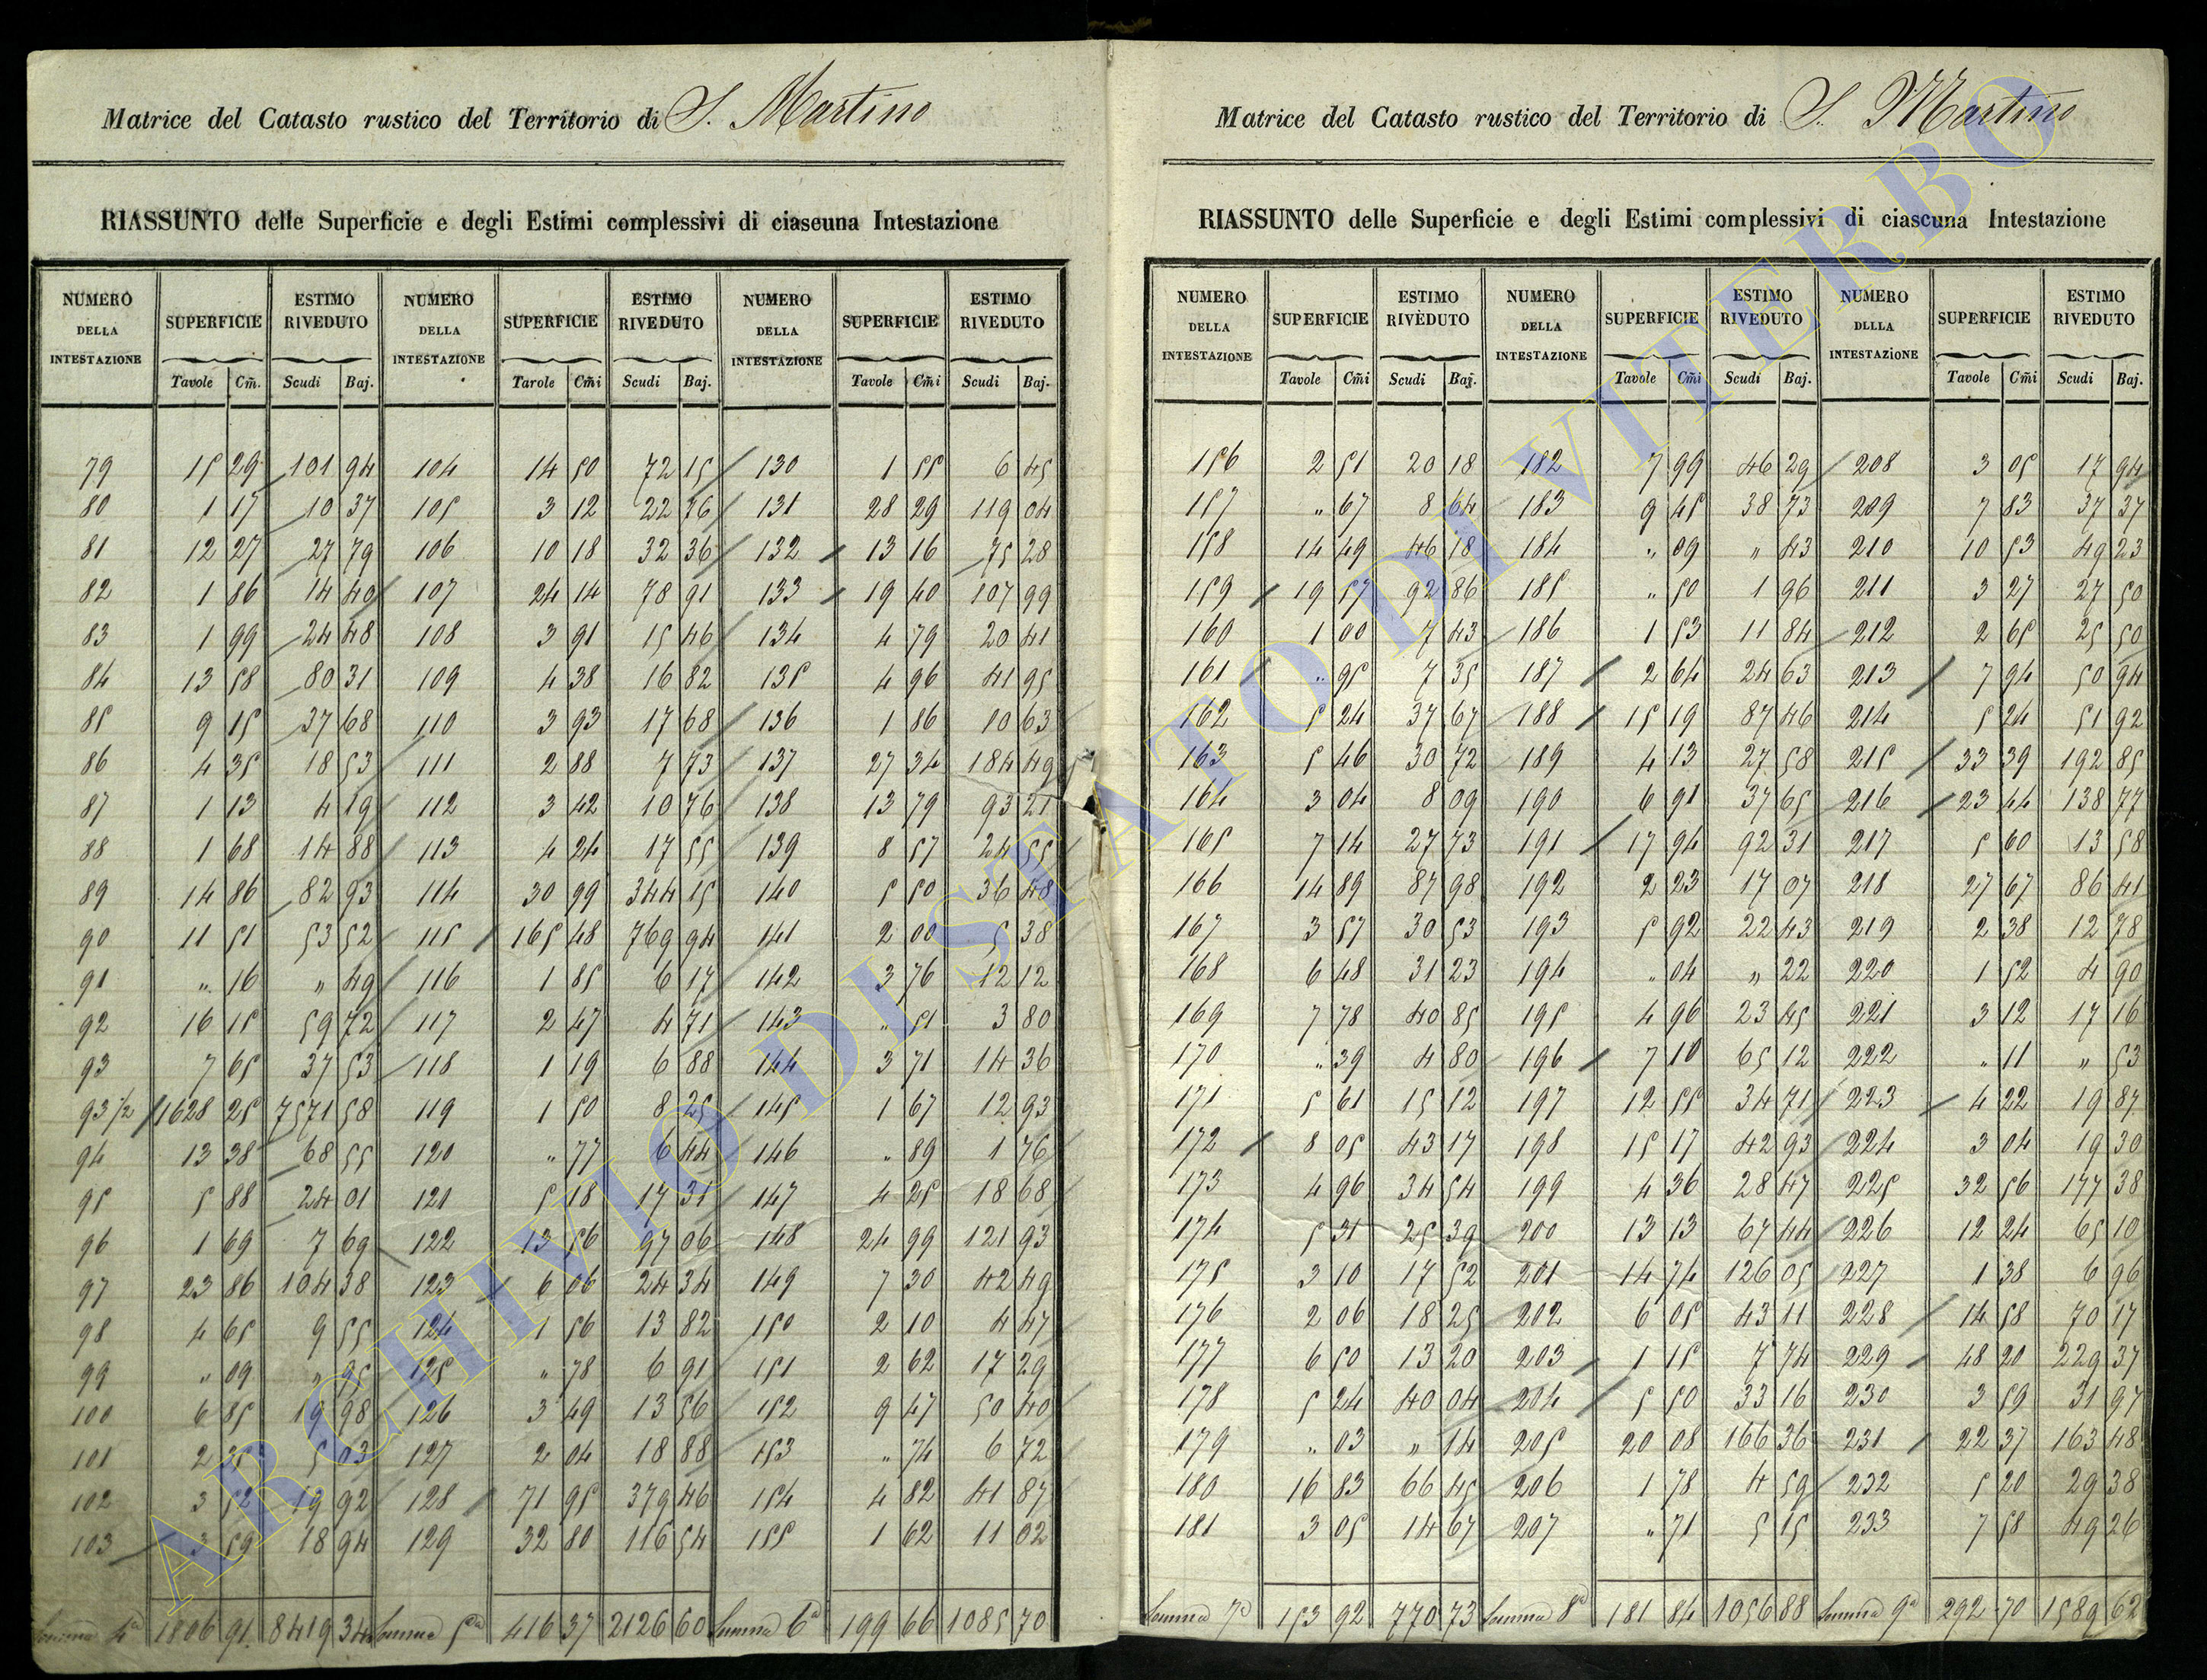 Matrice del Catasto rustico del Territorio di S. Martino
RIASSUNTO delle Superficie e degli Estimi complessivi di ciascuna Intestazione
NUMERO DELLA INTESTAZIONE SUPERFICIE ESTIMO RIVEDUTO NUMERO DELLA INTESTAZIONE SUPERFICIE ESTIMO RIVEDUTO NUMERO DELLA INTESTAZIONE SUPERFICIE ESTIMO RIVEDUTO
Tavole Cm̃. Scudi Baj. Tarole Cm̃i Scudi Baj. Tavole Cm̃i Scudi Baj.
79 15 29 101 94 104 14 50 72 15 130 1 55 6 45
80 1 17 10 37 105 3 12 22 76 131 28 29 119 04
81 12 27 27 79 106 10 18 32 36 132 13 16 75 28
82 1 86 14 40 107 24 14 78 91 133 19 40 107 99
83 1 99 24 48 108 3 91 15 46 134 4 79 20 41
84 13 58 80 31 109 4 38 16 82 135 4 96 41 95
85 9 15 37 68 110 3 93 17 68 136 1 86 10 63
86 4 35 18 53 111 2 88 7 73 137 27 34 184 49
87 1 13 4 19 112 3 42 10 76 138 13 79 93 21
88 1 68 14 88 113 4 24 17 55 139 8 57 24 55
89 14 86 82 93 114 30 99 344 15 140 5 50 36 48
90 11 51 53 52 115 165 48 769 94 141 2 00 5 38
91 „ 16 „ 49 116 1 85 6 17 142 3 76 12 12
92 16 15 59 72 117 2 47 4 71 143 „ 51 3 80
93 7 65 37 53 118 1 19 6 88 144 3 71 14 36
93 1/2 1628 25 7571 58 119 1 50 8 25 145 1 67 12 93
94 13 38 68 55 120 „ 77 6 44 146 „ 89 1 76
95 5 88 24 01 121 5 18 17 31 147 4 25 18 68
96 1 69 7 69 122 13 56 97 06 148 24 99 121 93
97 23 86 104 38 123 6 06 24 34 149 7 30 42 49
98 4 65 9 55 124 1 56 13 82 150 2 10 4 47
99 „ 09 „ 95 125 „ 78 6 91 151 2 62 17 29
100 6 85 19 98 126 3 49 13 56 152 9 47 50 40
101 2 35 5 03 127 2 04 18 88 153 „ 74 6 72
102 3 52 19 92 128 71 95 379 46 154 4 82 41 87
103 3 59 18 94 129 32 80 116 54 155 1 62 11 02
Somma 4a 1806 91 8419 34 Somma 5a 416 37 2126 60 Somma 6a 199 66 1085 70
Matrice del Catasto rustico del Territorio di S. Martino
RIASSUNTO delle Superficie e degli Estimi complessivi di ciascuna Intestazione
NUMERO DELLA INTESTAZIONE SUPERFICIE ESTIMO RIVEDUTO NUMERO DELLA INTESTAZIONE SUPERFICIE ESTIMO RIVEDUTO NUMERO DLLLA INTESTAZIONE SUPERFICIE ESTIMO RIVEDUTO
Tavole Cm̃i Scudi Baj. Tavole Cm̃i Scudi Baj. Tavole Cm̃i Scudi Baj.
156 2 51 20 18 182 7 99 46 29 208 3 05 17 94
157 „ 67 8 64 183 9 45 38 73 209 7 83 37 37
158 14 49 46 18 184 „ 09 „ 43 210 10 53 49 23
159 19 57 92 86 185 „ 50 1 96 211 3 27 27 50
160 1 00 7 43 186 1 53 11 84 212 2 65 25 50
161 „ 95 7 35 187 2 64 24 63 213 7 94 50 94
162 5 24 37 67 188 15 19 87 46 214 5 24 51 92
163 5 46 30 72 189 4 13 27 58 215 33 39 192 85
164 3 04 8 09 190 6 91 37 65 216 23 44 138 77
165 7 14 27 73 191 17 94 92 31 217 5 60 13 58
166 14 89 87 98 192 2 23 17 07 218 27 67 86 41
167 3 57 30 53 193 5 92 22 43 219 2 38 12 78
168 6 48 31 23 194 „ 04 „ 22 220 1 52 4 90
169 7 78 40 85 195 4 96 23 45 221 3 12 17 16
170 „ 39 4 80 196 7 10 65 12 222 „ 11 „ 53
171 5 61 15 12 197 12 55 34 71 223 4 22 19 87
172 8 05 43 17 198 15 17 42 93 224 3 04 19 30
173 4 96 34 54 199 4 36 28 47 225 32 56 177 38
174 5 31 25 39 200 13 13 67 44 226 12 24 65 10
175 3 10 17 52 201 14 74 126 05 227 1 38 6 96
176 2 06 18 25 202 6 05 43 11 228 14 58 70 17
177 6 50 13 20 203 1 15 7 74 229 48 20 229 37
178 5 24 40 04 204 5 50 33 16 230 3 59 31 97
179 „ 03 „ 14 205 20 08 166 36 231 22 37 163 48
180 16 83 66 45 206 1 78 4 59 232 5 20 29 38
181 3 05 14 67 207 „ 71 5 15 233 7 58 49 26
Somma 7a 153 92 770 73 Somma 8a 181 84 1056 88 Somma 9a 292 70 1589 62
ARCHIVIO DI STATO DI VITERBO